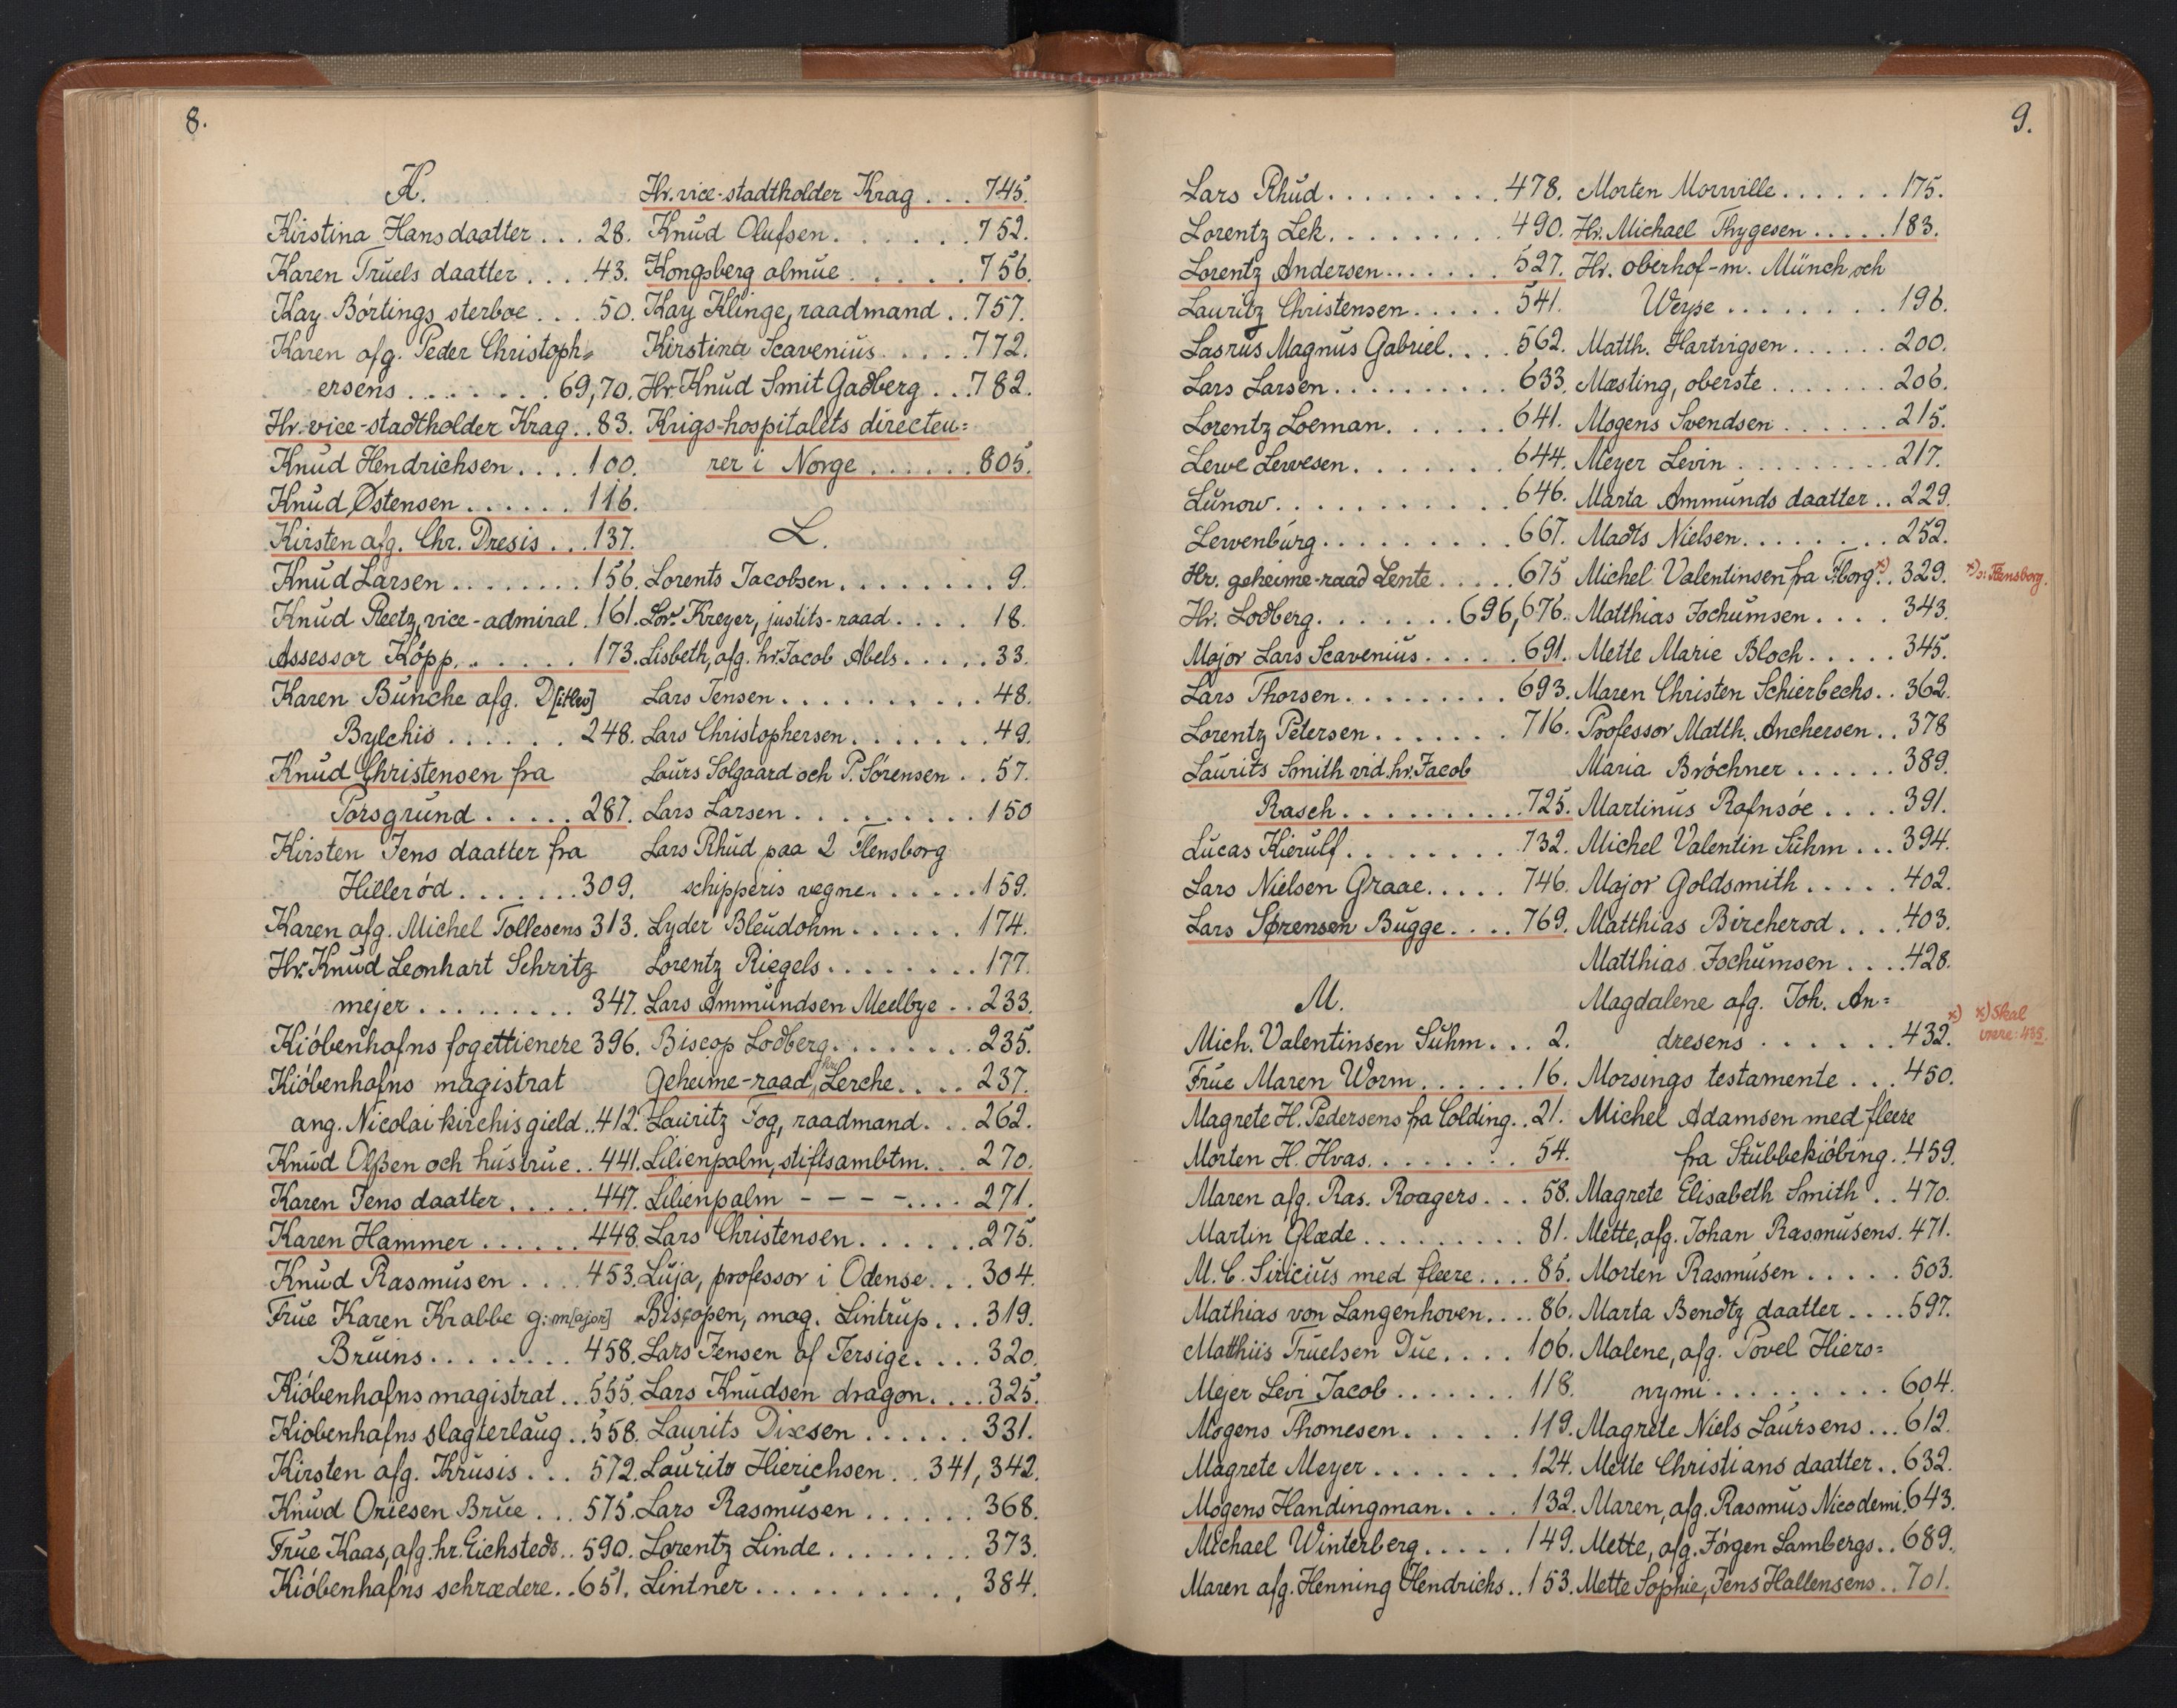 8.
K.
Kirstina Hansdaatter . . . 28.
Karen Truels daatter . . . . 43.
Kay Börtings sterboe . . . 50.
Karen afg. Peder Christoph=
ersens . . . . . . . . 69,70.
Hr. vice-stadtholder Krag . . 83.
Knud Hendrichsen . . . . 100.
Knud Østensen . . . . . . 116.
Kirsten afg. Chr. Dresis . . . 137.
Knud Larsen . . . . . . . . 156.
Knud Reetz, vice-admiral . 161.
Assessor Köpp . . . . . . . 173.
Karen Bunche afg. D[itlev]
Bylchis . . . . . . 248.
Knud Christensen fra
Porsgrund . . . . . 287.
Kirsten Jens daatter fra
Hilleröd . . . . . . . 309.
Karen afg. Michel Tollesens 313.
Hr. Knud Leonhart Schritz
mejer . . . . . . . . . 347.
Kiöbenhafns fogettienere 396.
Kiöbenhafns magistrat
ang. Nicolai kirchis gield . . 412.
Knud Olßen och hustrue . . 441.
Karen Jens daatter . . . . . 447.
Karen Hammer . . . . . . 448.
Knud Rasmusen . . . . 453.
Frue Karen Krabbe g: m[ajor]
Bruins . . . . . . . . 458.
Kiöbenhafns magistrat . . . 555.
Kiöbenhafns slagterlaug . . 558.
Kirsten afg. Krusis . . . 572.
Knud Oriesen Brue . . . 575.
Frue Kaas, afg. hr. Eichsteds . . 590.
Kiöbenhafns schrædere . . 651.
Hr. vice-stadtholder Krag . . . 745.
Knud Olufsen . . . . . . . 752.
Kongsberg almue . . . . . 756.
Kay Klinge, raadmand . . 757.
Kirstina Scavenius . . . . . 772.
Hr. Knud Smit Gadberg . . . 782.
Krigs-hospitalets directeu=
rer i Norge . . . . . . 805.
L.
Lorents Jacobsen . . . . . . . . 9.
Lor. Kreyer, justits-raad . . . . 18.
Lisbeth, afg. hr. Jacob Abels . . . . . 33.
Lars Jensen . . . . . . . . . . 48.
Lars Christophersen . . . . . . . 49.
Laurs Solgaard och P. Sørensen . . 57.
Lars Larsen . . . . . . . . . 150
Lars Rhud paa 2 Flensborg
schipperis vegne . . . . . . 159.
Lyder Bleudohm . . . . . . 174.
Lorentz Riegels . . . . . . . . 177.
Lars Ammundsen Meelbye . . 233.
Biscop Lodberg . . . . . . . 235.
Geheime-raad hr. Lerche . . . . 237.
Lauritz Fog, raadmand . . . 262.
Lilienpalm, stiftsambtm. . . 270.
Lilienpalm - - - - . . . . 271.
Lars Christensen . . . . . . 275.
Luja, professor i Odense . . . 304.
Biscopen, mag. Lintrup . . . 319.
Lars Jensen af Tersige . . . . 320.
Lars Knudsen dragon . . . . 325.
Laurits Dixsen . . . . . . 331.
Laurits Hierichsen . . 341, 342.
Lars Rasmusen . . . . . . 368.
Lorentz Linde . . . . . . . . 373.
Lintner . . . . . . . . . . 384.
9.
Lars Rhud . . . . . . . . . 478.
Lorentz Lek . . . . . . . . . 490.
Lorentz Andersen . . . . . . . 527.
Lauritz Christensen . . . . . 541.
Lasrus Magnus Gabriel . . . . 562.
Lars Larsen . . . . . . . . . . 633.
Lorentz Loeman . . . . . . 641.
Lewe Lewesen . . . . . . . 644.
Lunow . . . . . . . . . . . 646.
Lewenburg . . . . . . . . . 667.
Hr. geheime-raad Lente . . . . . 675
Hr. Lodberg . . . . . . . 696,676.
Major Lars Scavenius . . . . . 691.
Lars Thorsen . . . . . . . . . 693.
Lorentz Petersen . . . . . . . 716.
Laurits Smith vid. hr. Jacob
Rasch . . . . . . . . . . 725.
Lucas Kierulf . . . . . . . . 732.
Lars Nielsen Graae . . . . . 746.
Lars Sørensen Bugge . . . . 769.
M.
Mich. Valentinsen Suhm . . . 2.
Frue Maren Worm . . . . . . 16.
Magrete H. Pedersens fra Colding . . 21.
Morten H. Hvas . . . . . . . 54.
Maren afg. Ras. Roagers . . . 58.
Martin Glæde . . . . . . . . . 81.
M. C. Siricius med fleere . . . . 85.
Mathias von Langenhoven . . . . 86.
Matthiis Truelsen Due . . . . 106.
Mejer Levi Jacob . . . . . . . 118.
Mogens Thomesen . . . . . 119.
Magrete Meyer . . . . . . . 124.
Mogens Handingman . . . . 132.
Michael Winterberg . . . . . 149.
Maren afg. Henning Hendrichs . . 153.
Morten Morville . . . . . . 175.
Hr. Michael Thygesen . . . . . 183.
Hr. oberhof-m. Münch och
Weyse . . . . . . . . 196.
Matth. Hartvigsen . . . . . . 200.
Mæsting, oberste . . . . . . . 206.
Mogens Svendsen . . . . . . 215.
Meyer Levin . . . . . . . . . 217.
Marta Ammunds daatter . . 229.
Mads Nielsen . . . . . . . . 252.
Michel Valentinsen fra Flborg *) . . 329. *) ɔ: Flensborg.
Matthias Jochumsen . . . . 343.
Mette Marie Bloch . . . . . 345.
Maren Christen Schierbechs . . 362.
Professor Matth. Anchersen . . 378
Maria Bröchner . . . . . . 389.
Martinus Rafnsöe . . . . 391.
Michel Valentin Suhm . . . 394.
Major Goldsmith . . . . . 402.
Matthias Bircherod . . . . 403.
Matthias Jochumsen . . . . 428.
Magdalene afg. Joh. An=
dresens . . . . . . 432. *) *) Skal
være: 435.
Morsings testamente . . . 450.
Michel Adamsen med fleere
fra Stubbekiöbing . . 459.
Magrete Elisabeth Smith . . 470.
Mette, afg. Johan Rasmusens . 471.
Morten Rasmusen . . . . . 503.
Marta Bendtz daatter . . . . 597.
Malene, afg. Povel Hiero=
nymi . . . . . . . . . 604.
Magrete Niels Laursens . . . 612.
Mette Christians daatter . . 632.
Maren, afg. Rasmus Nicodemi . 643.
Mette, afg. Jörgen Lambergs . . 689.
Mette Sophie, Jens Hallensens . . 701.